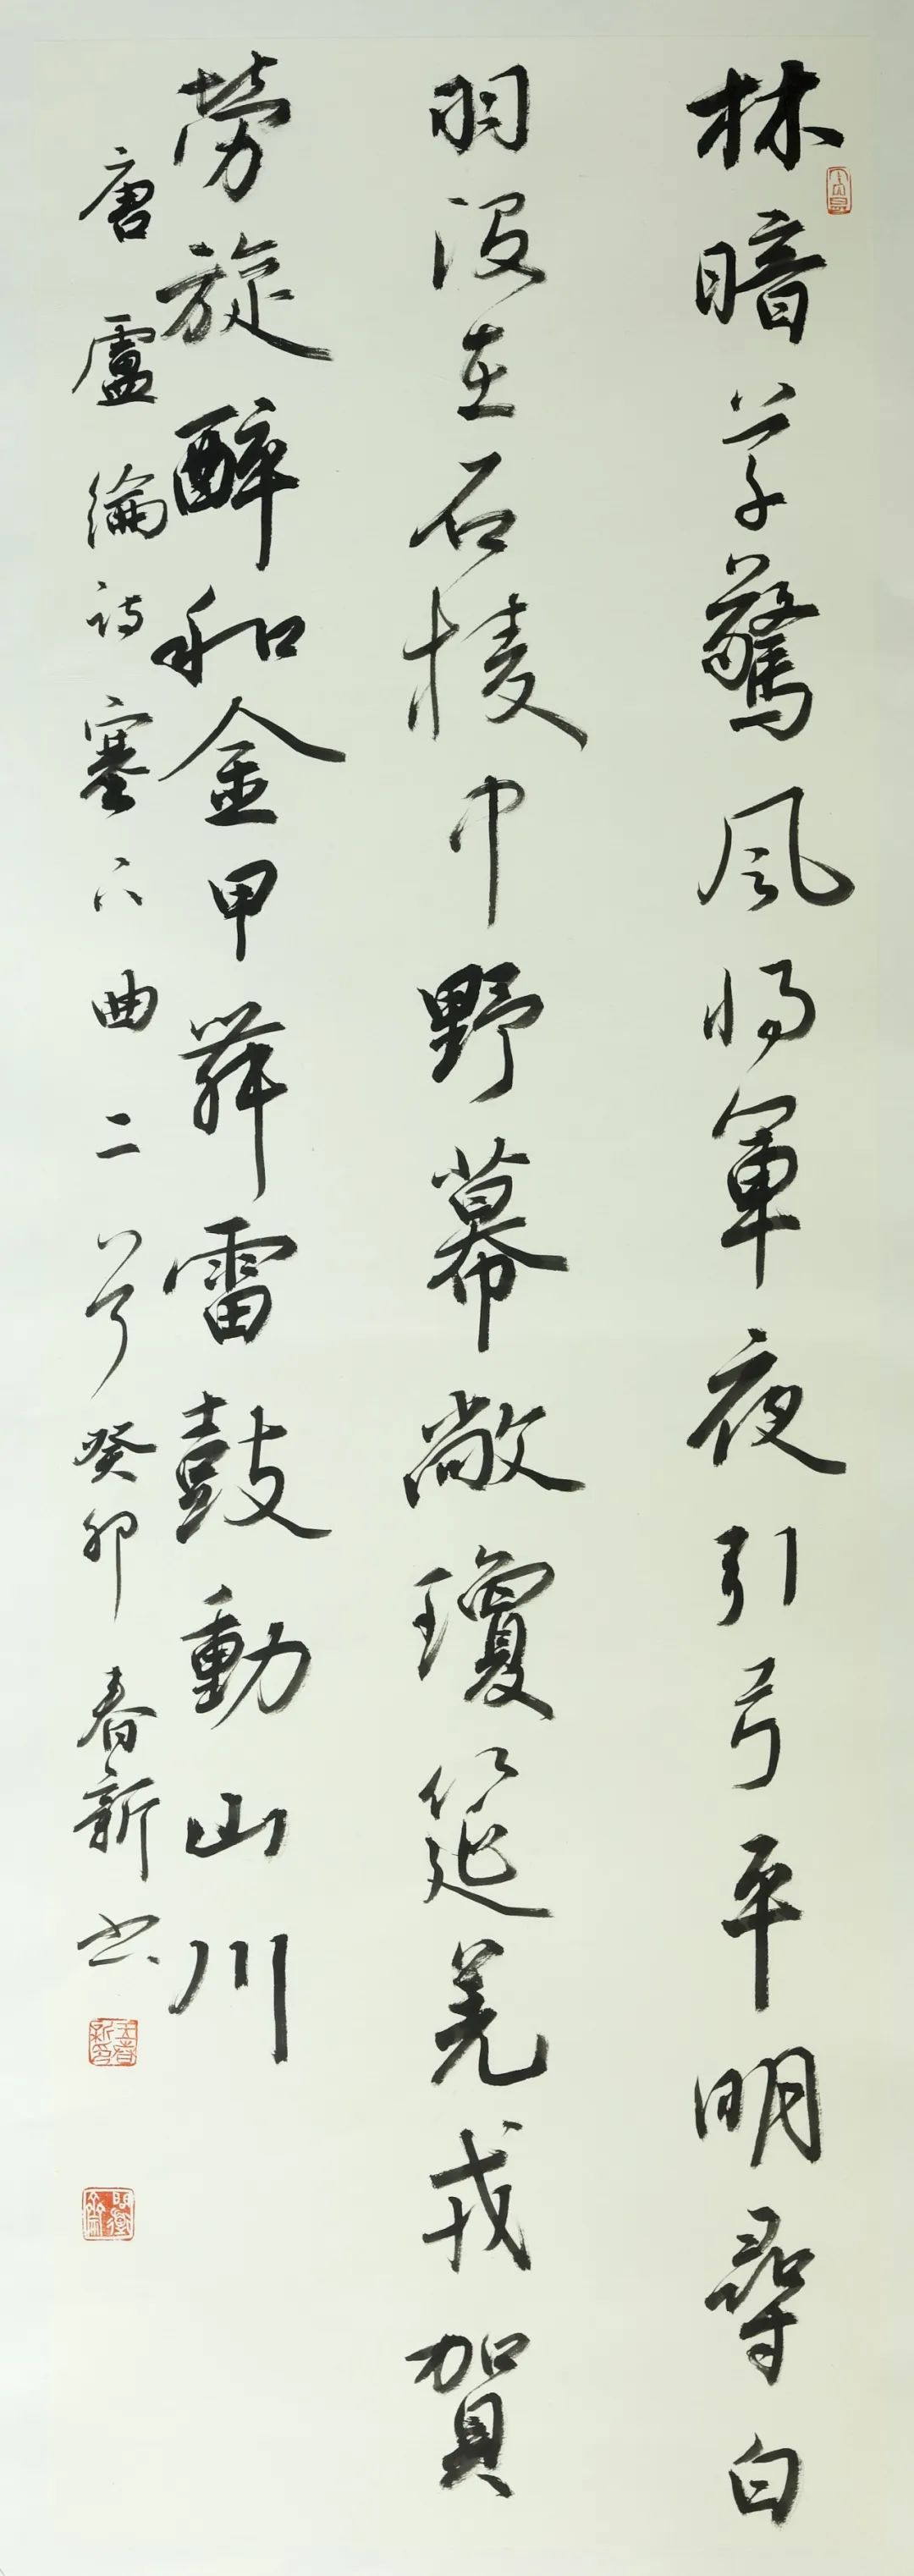 林暗草驚風將軍夜引弓平明尋白
羽沒在石棱中野幕敞瓊筵羌戎賀
勞旋醉和金甲舞雷鼓動山川
唐盧綸詩塞下曲二首癸卯春新书
王春新印